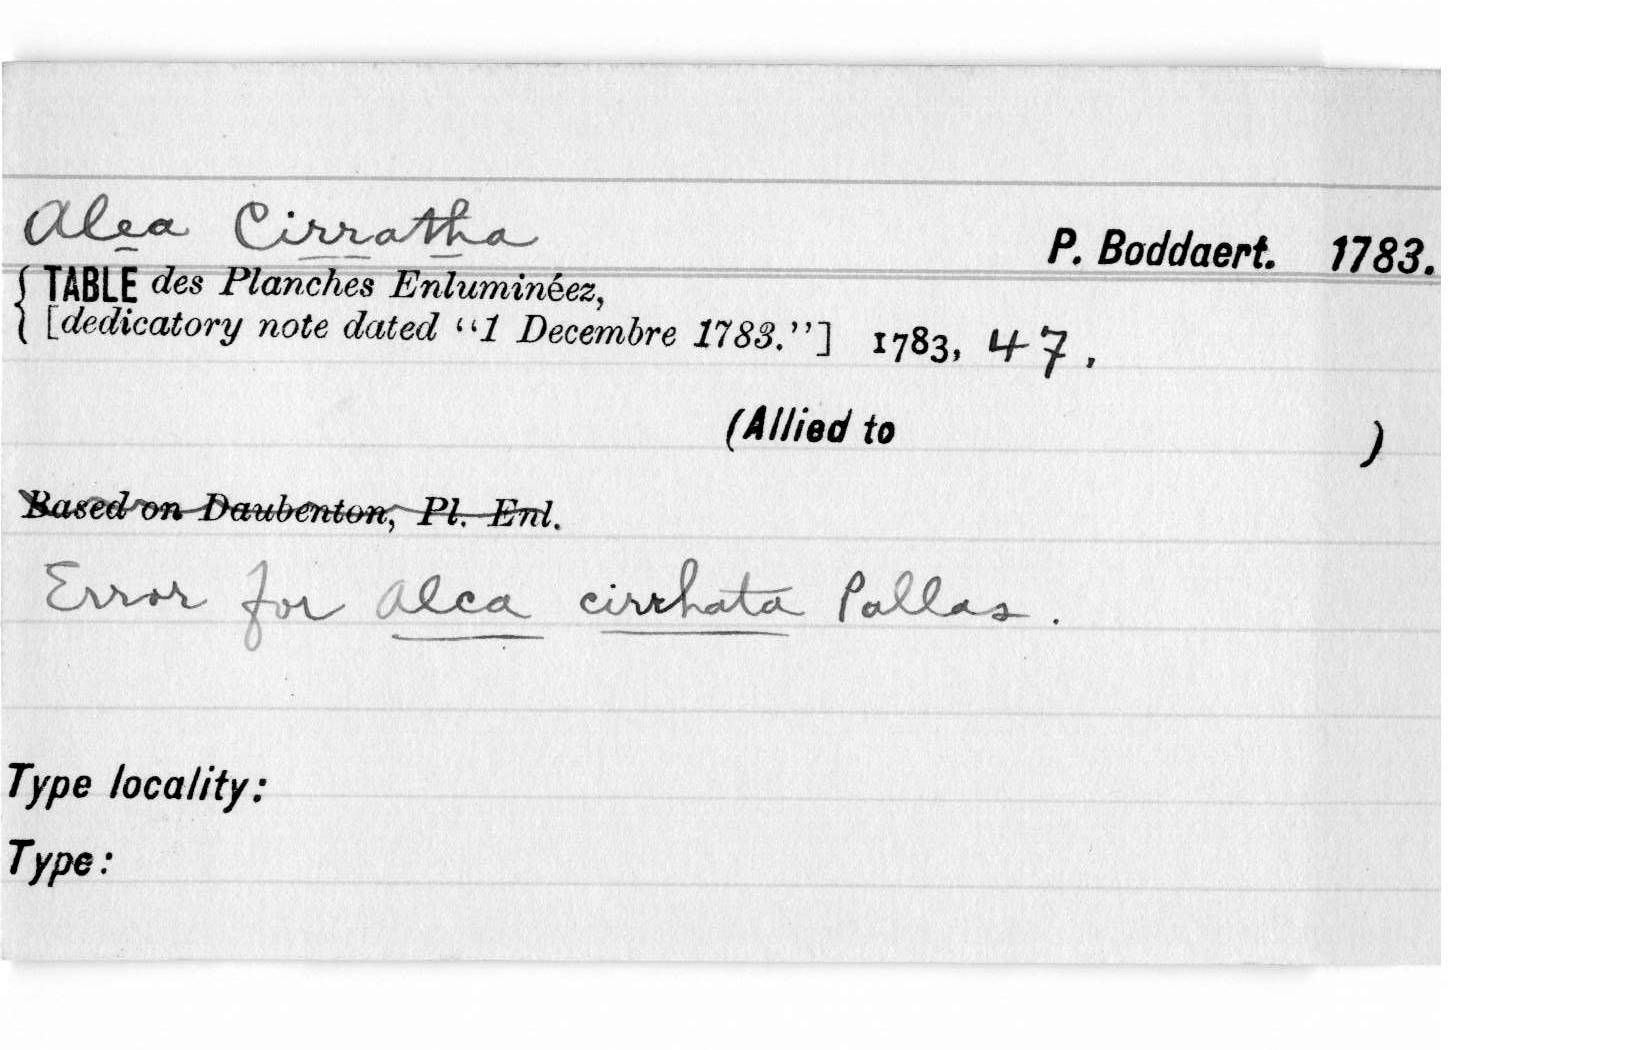 Alea Cirratha
P. Boddaert. 1783.
{ TABLE des Planches Enluminéez,
[dedicatory note dated “1 Decembre 1783.”] 1783, 47.
(Allied to )
Based on Daubenton, Pl. Enl.
Error for Alca cirrhata Pallas.
Type locality:
Type: